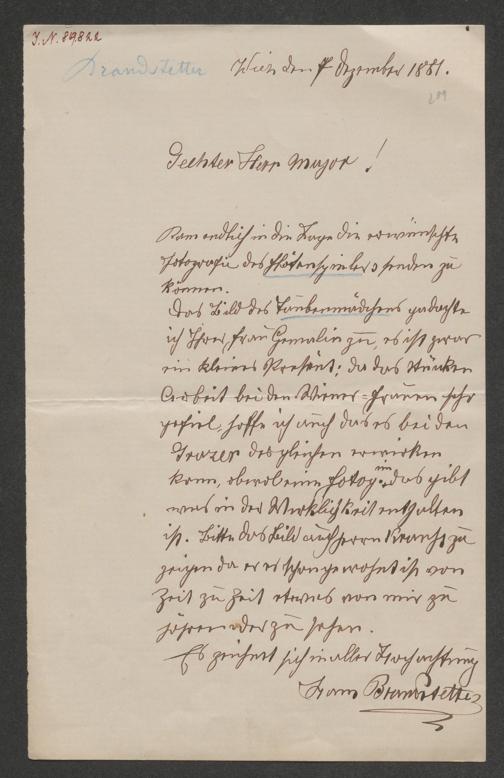 J. N. 89.822
Brandstetter
Wien den 7 Dezember 1881.
Geehrter Herr Major!
Kam endlich in die Lage die erwünschte
Fotografie des Flötenspielers senden zu
können.
Das Bild des Taubenmädchens gedachte
ich Ihrer Frau Gemalin zu, es ist zwar
ein kleines Present; da das
Arbeit bei den Wiener-Frauen sehr
gefiel, hoffe ich auch das es bei den
Grazer desgleichen erwirken
kann, obwol eine Fotog: nie das gibt
was in der Wirklichkeit enthalten
ist. Bitte das Bild auch Herrn zu
zeigen da er es schon gewohnt ist von
Zeit zu Zeit etwas von mir zu
hören oder zu sehen.
Es zeichnet sich in aller Hochachtung
Hans Brandstetter